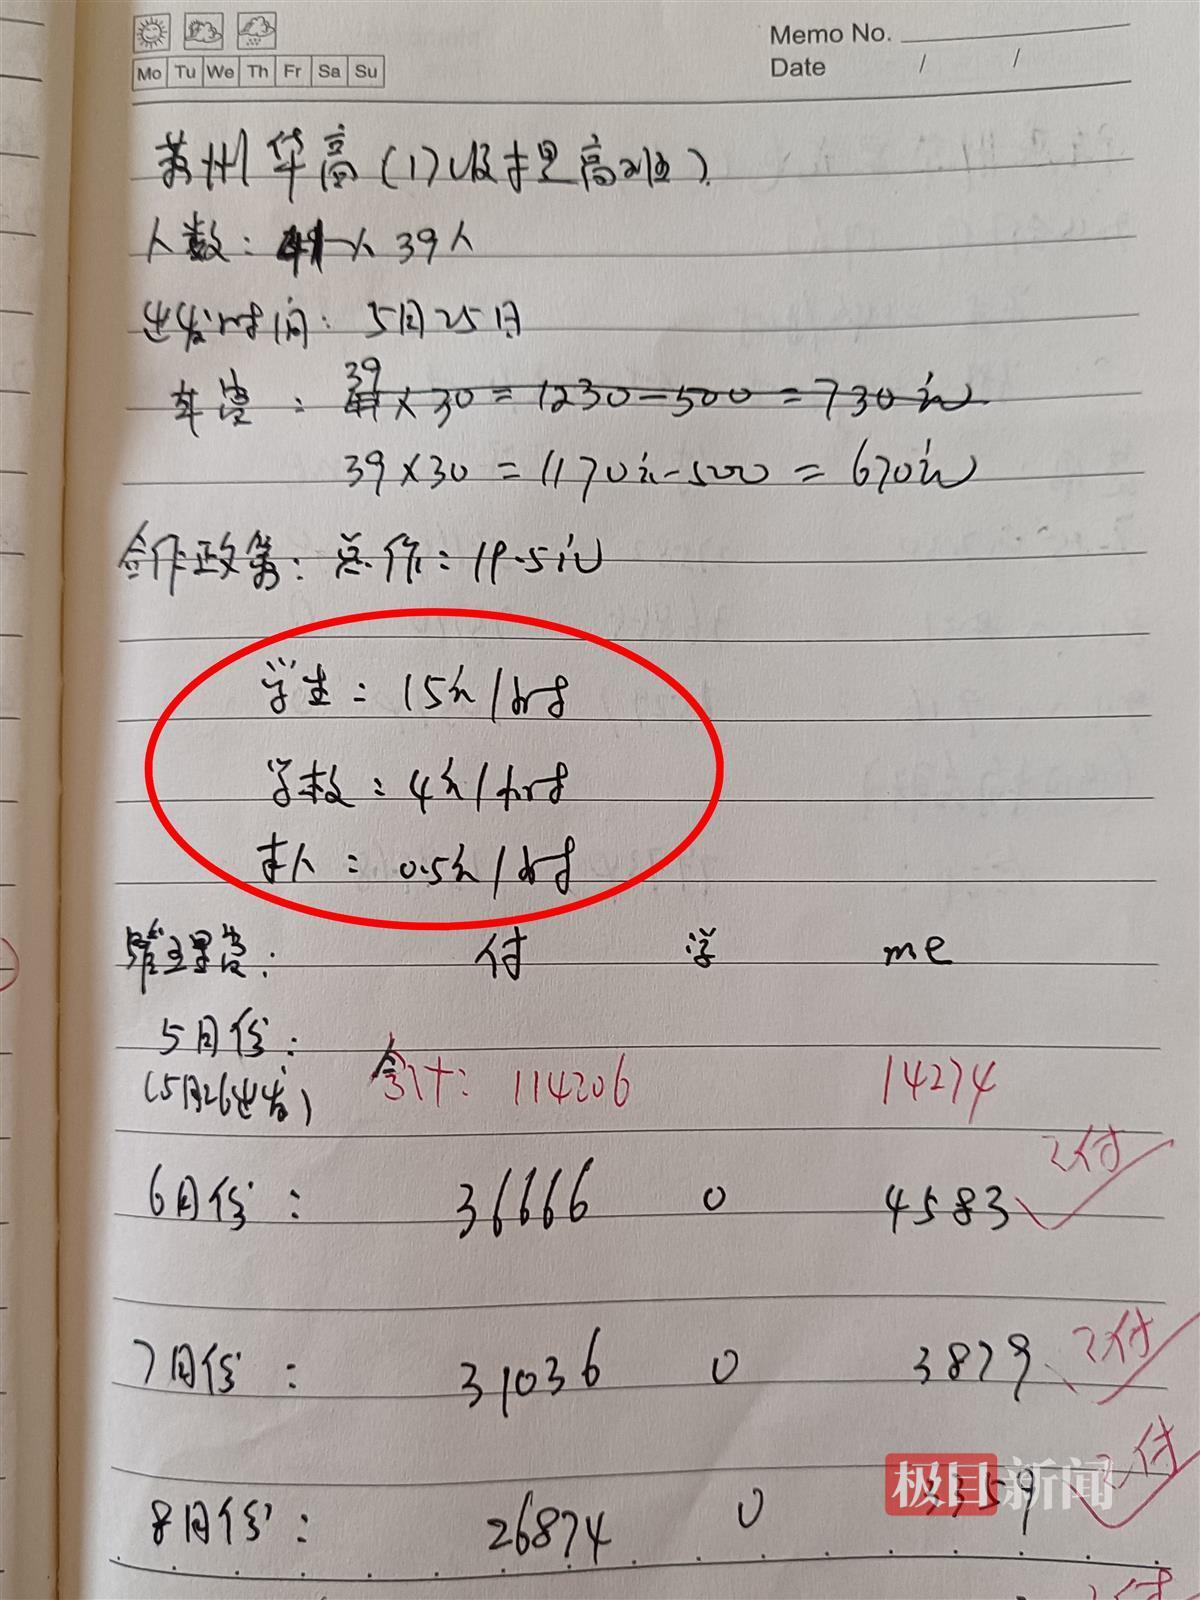 Memo No.
Mo Tu We Th Fr Sa Su
Date / /
苏州华高(1)
人数: 39人
出发时间: 5月25日
39
车费: ×30=1230-500=730元
39×30=1170元-500=670元
合作政策: 总价: 19.5元
学生: 15元/时
学校: 4元/时
本人: 0.5元/时
管理费: 付 学 me
5月份:
(5月26出发) 合计: 114206 14274
已付
6月份: 36666 0 4583
已付
7月份: 31036 0 3879
已付
8月份: 26874 0 3359
极目新闻
已付